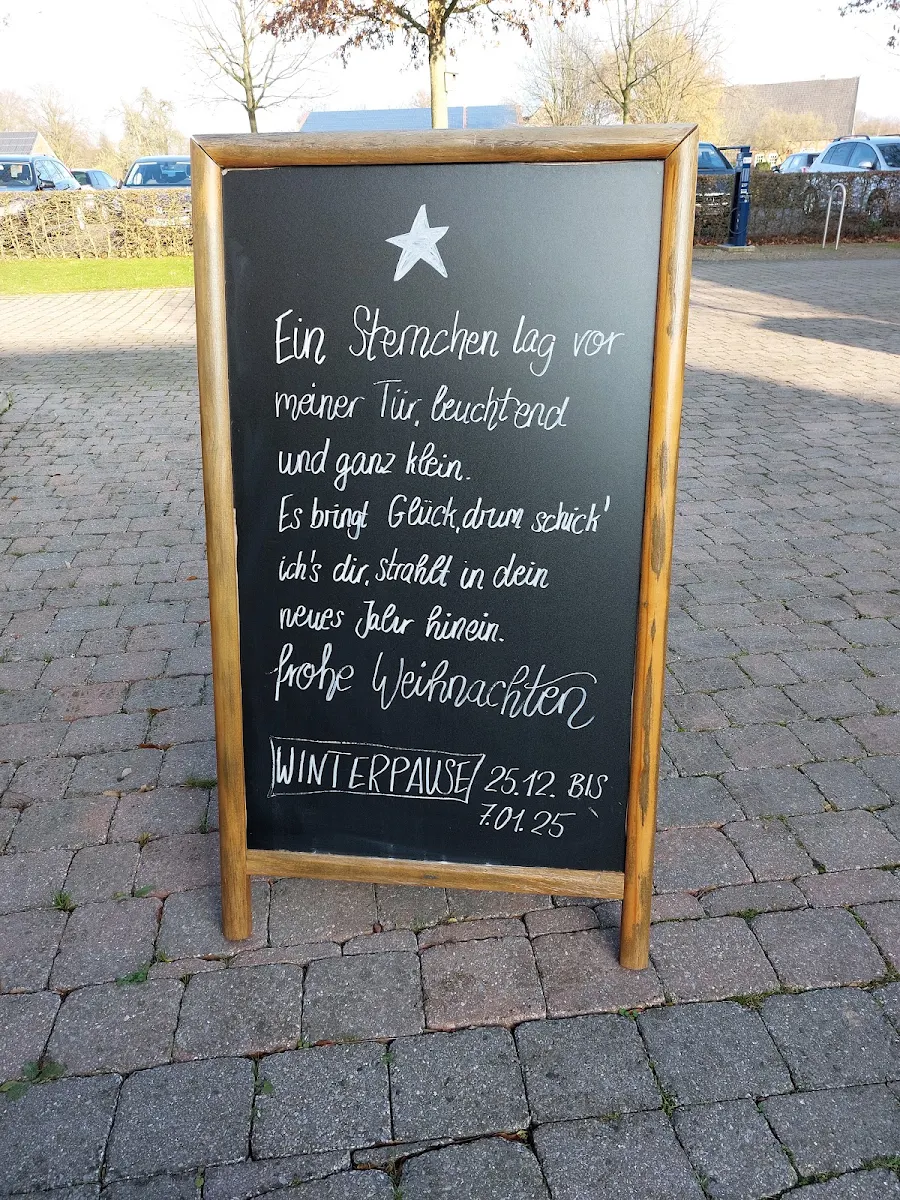 Ein Sternchen lag vor
meiner Tür, leuchtend
und ganz klein.
Es bringt Glück, drum schick'
ich's dir, strahlt in dein
neues Jahr hinein.
frohe Weihnachten
WINTERPAUSE 25.12. BIS
7.01.25